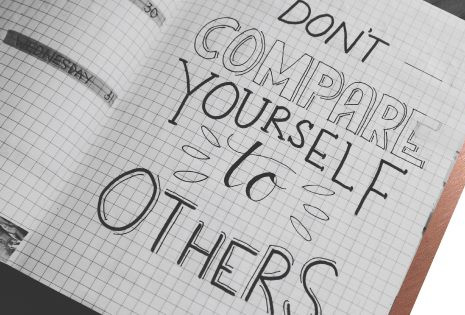 30
WEDNESDAY 31
DON'T
COMPARE
YOURSELF
to
OTHERS